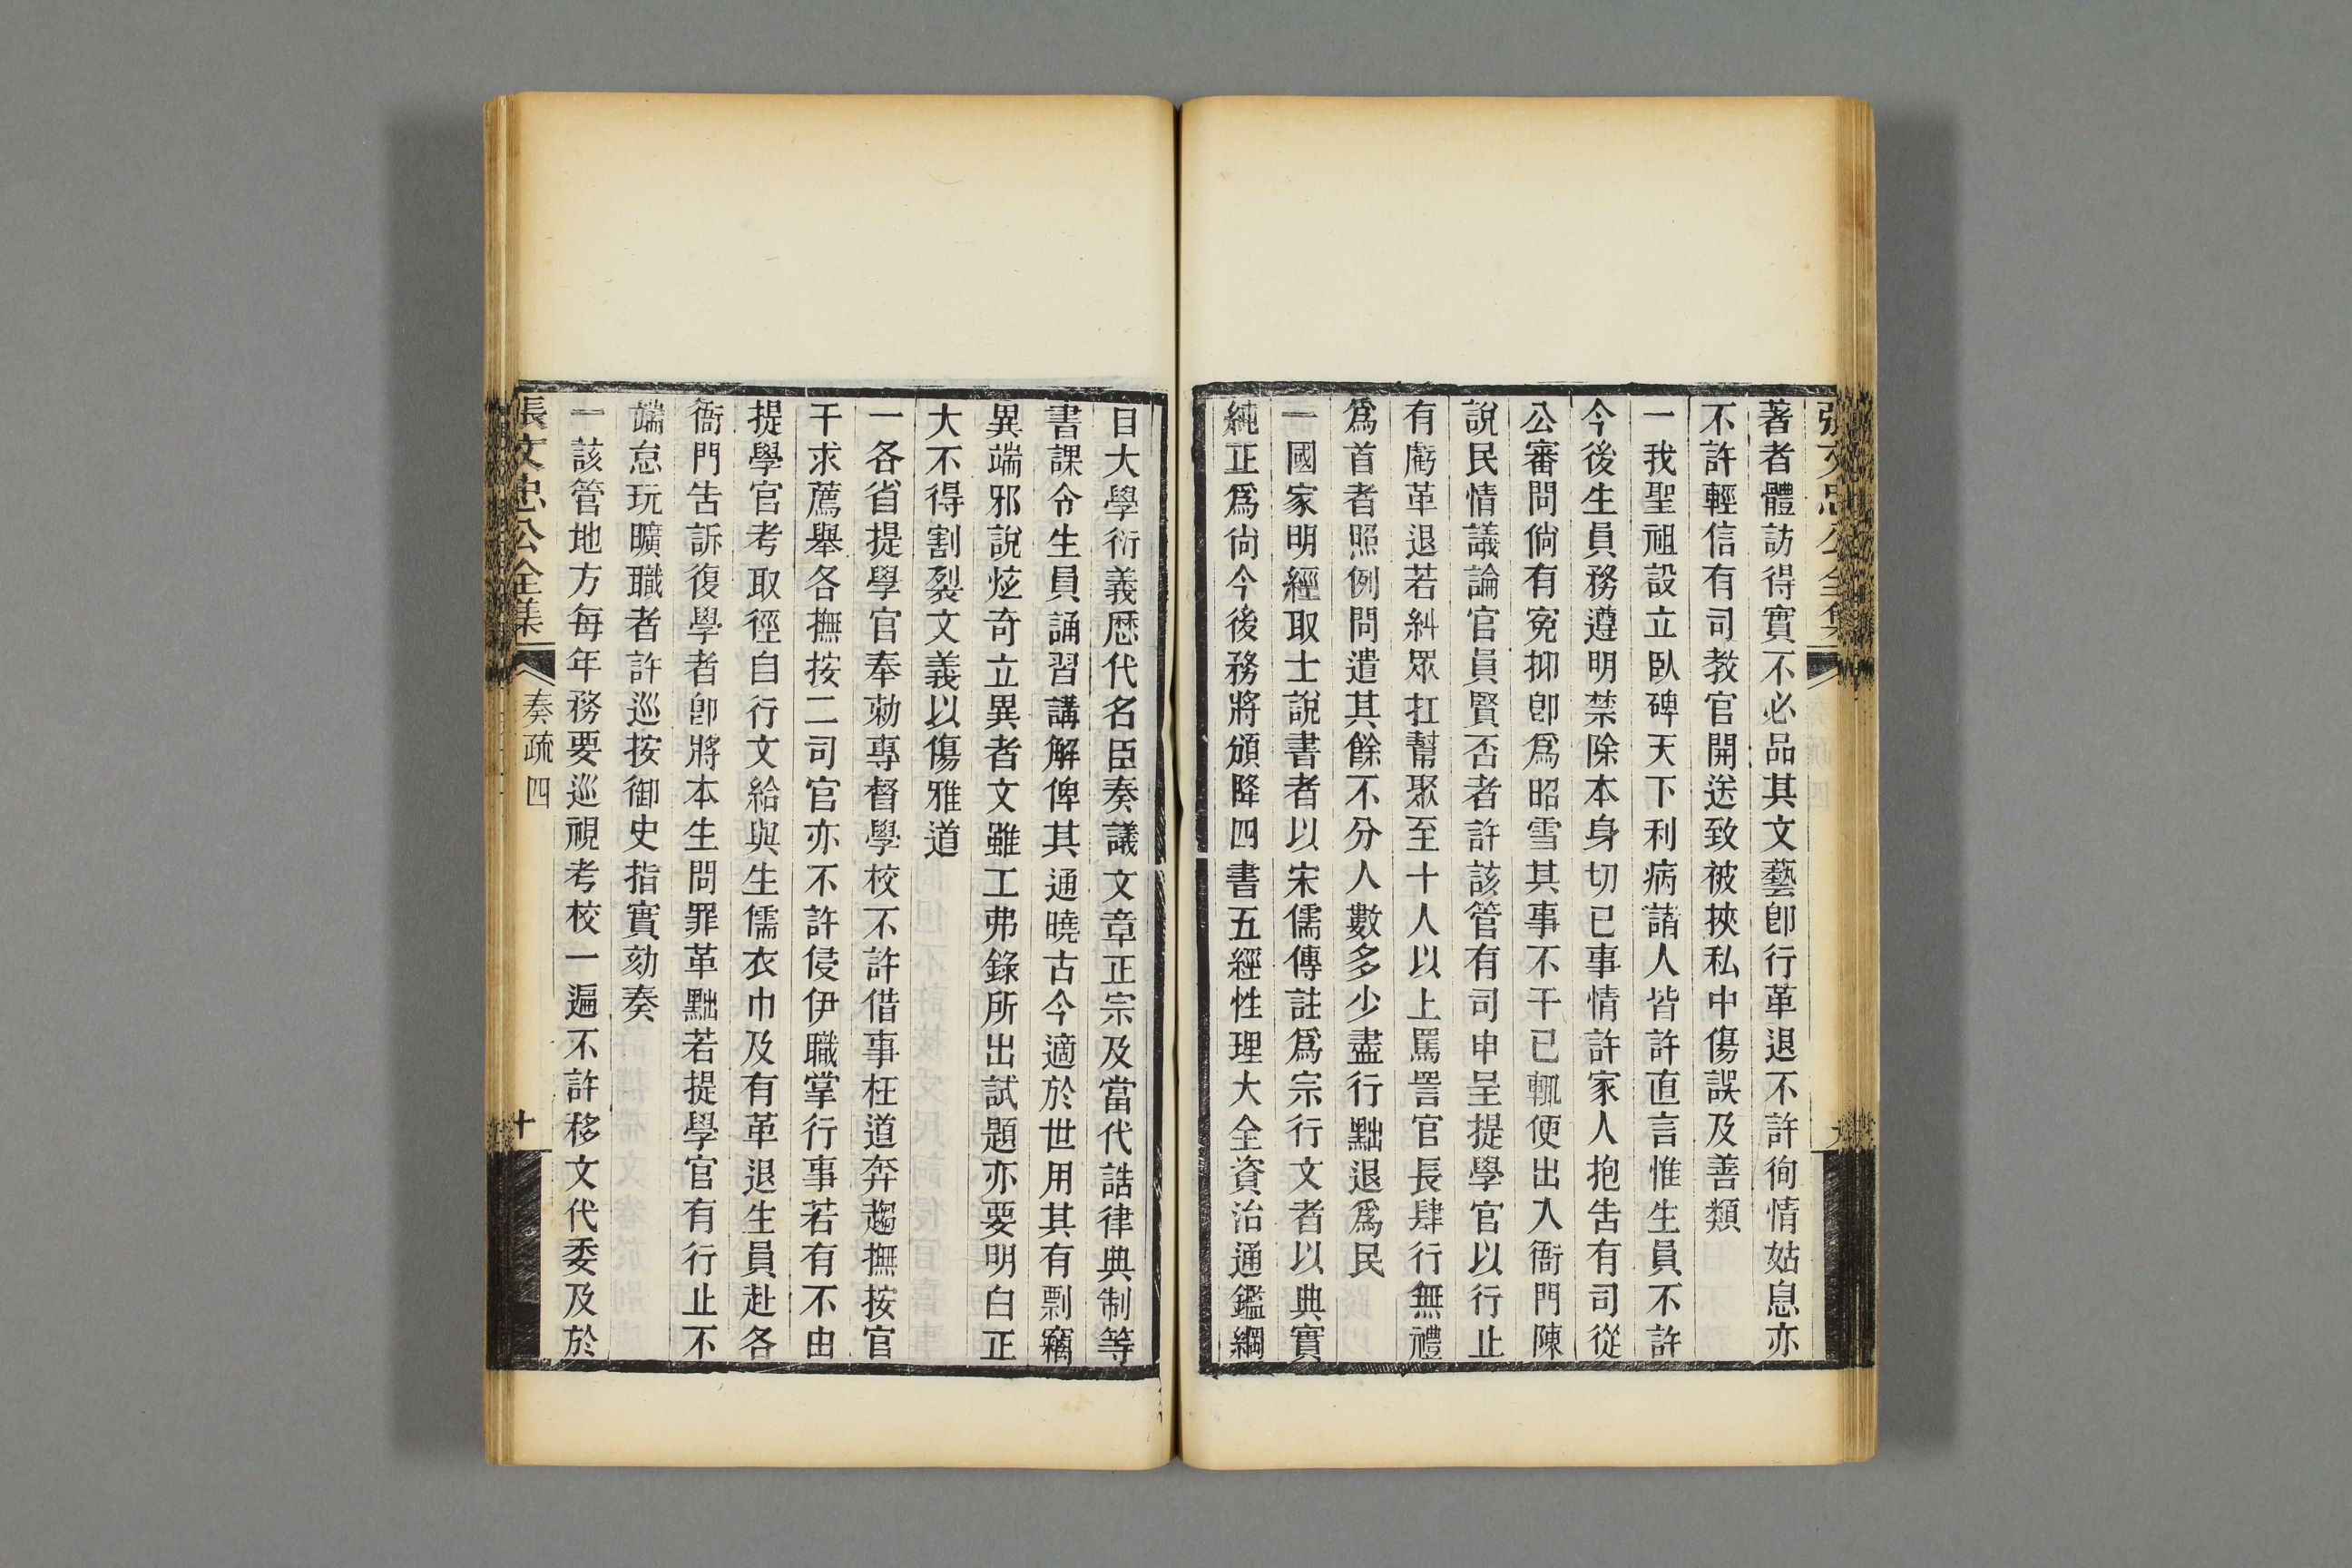 張文忠公全集
著者體訪得實不必品其文藝卽行革退不許徇情姑息亦
不許輕信有司教官開送致被挾私中傷誤及善類
一我聖祖設立臥碑天下利病諸人皆許直言惟生員不許
今後生員務遵明禁除本身切已事情許家人抱吿有司從
公審問倘有寃抑卽爲昭雪其事不干已輒便出入衙門陳
說民情議論官員賢否者許該管有司申呈提學官以行止
有虧革退若糾眾扛幫聚至十人以上罵詈官長肆行無禮
爲首者照例問遣其餘不分人數多少盡行黜退爲民
一國家明經取士說書者以宋儒傳註爲宗行文者以典實
純正爲尙今後務將頒降四書五經性理大全資治通鑑綱
目大學衍義歷代名臣奏議文章正宗及當代誥律典制等
書課令生員誦習講解俾其通曉古今適於世用其有剽竊
異端邪說炫奇立異者文雖工弗錄所出試題亦要明白正
大不得割裂文義以傷雅道
一各省提學官奉勅專督學校不許借事枉道奔趨撫按官
干求薦舉各撫按二司官亦不許侵伊職掌行事若有不由
提學官考取徑自行文給與生儒衣巾及有革退生員赴各
衙門吿訴復學者卽將本生問罪革黜若提學官有行止不
端怠玩曠職者許巡按御史指實劾奏
一該管地方每年務要巡視考校一遍不許移文代委及於
張文忠公全集
奏疏四
十